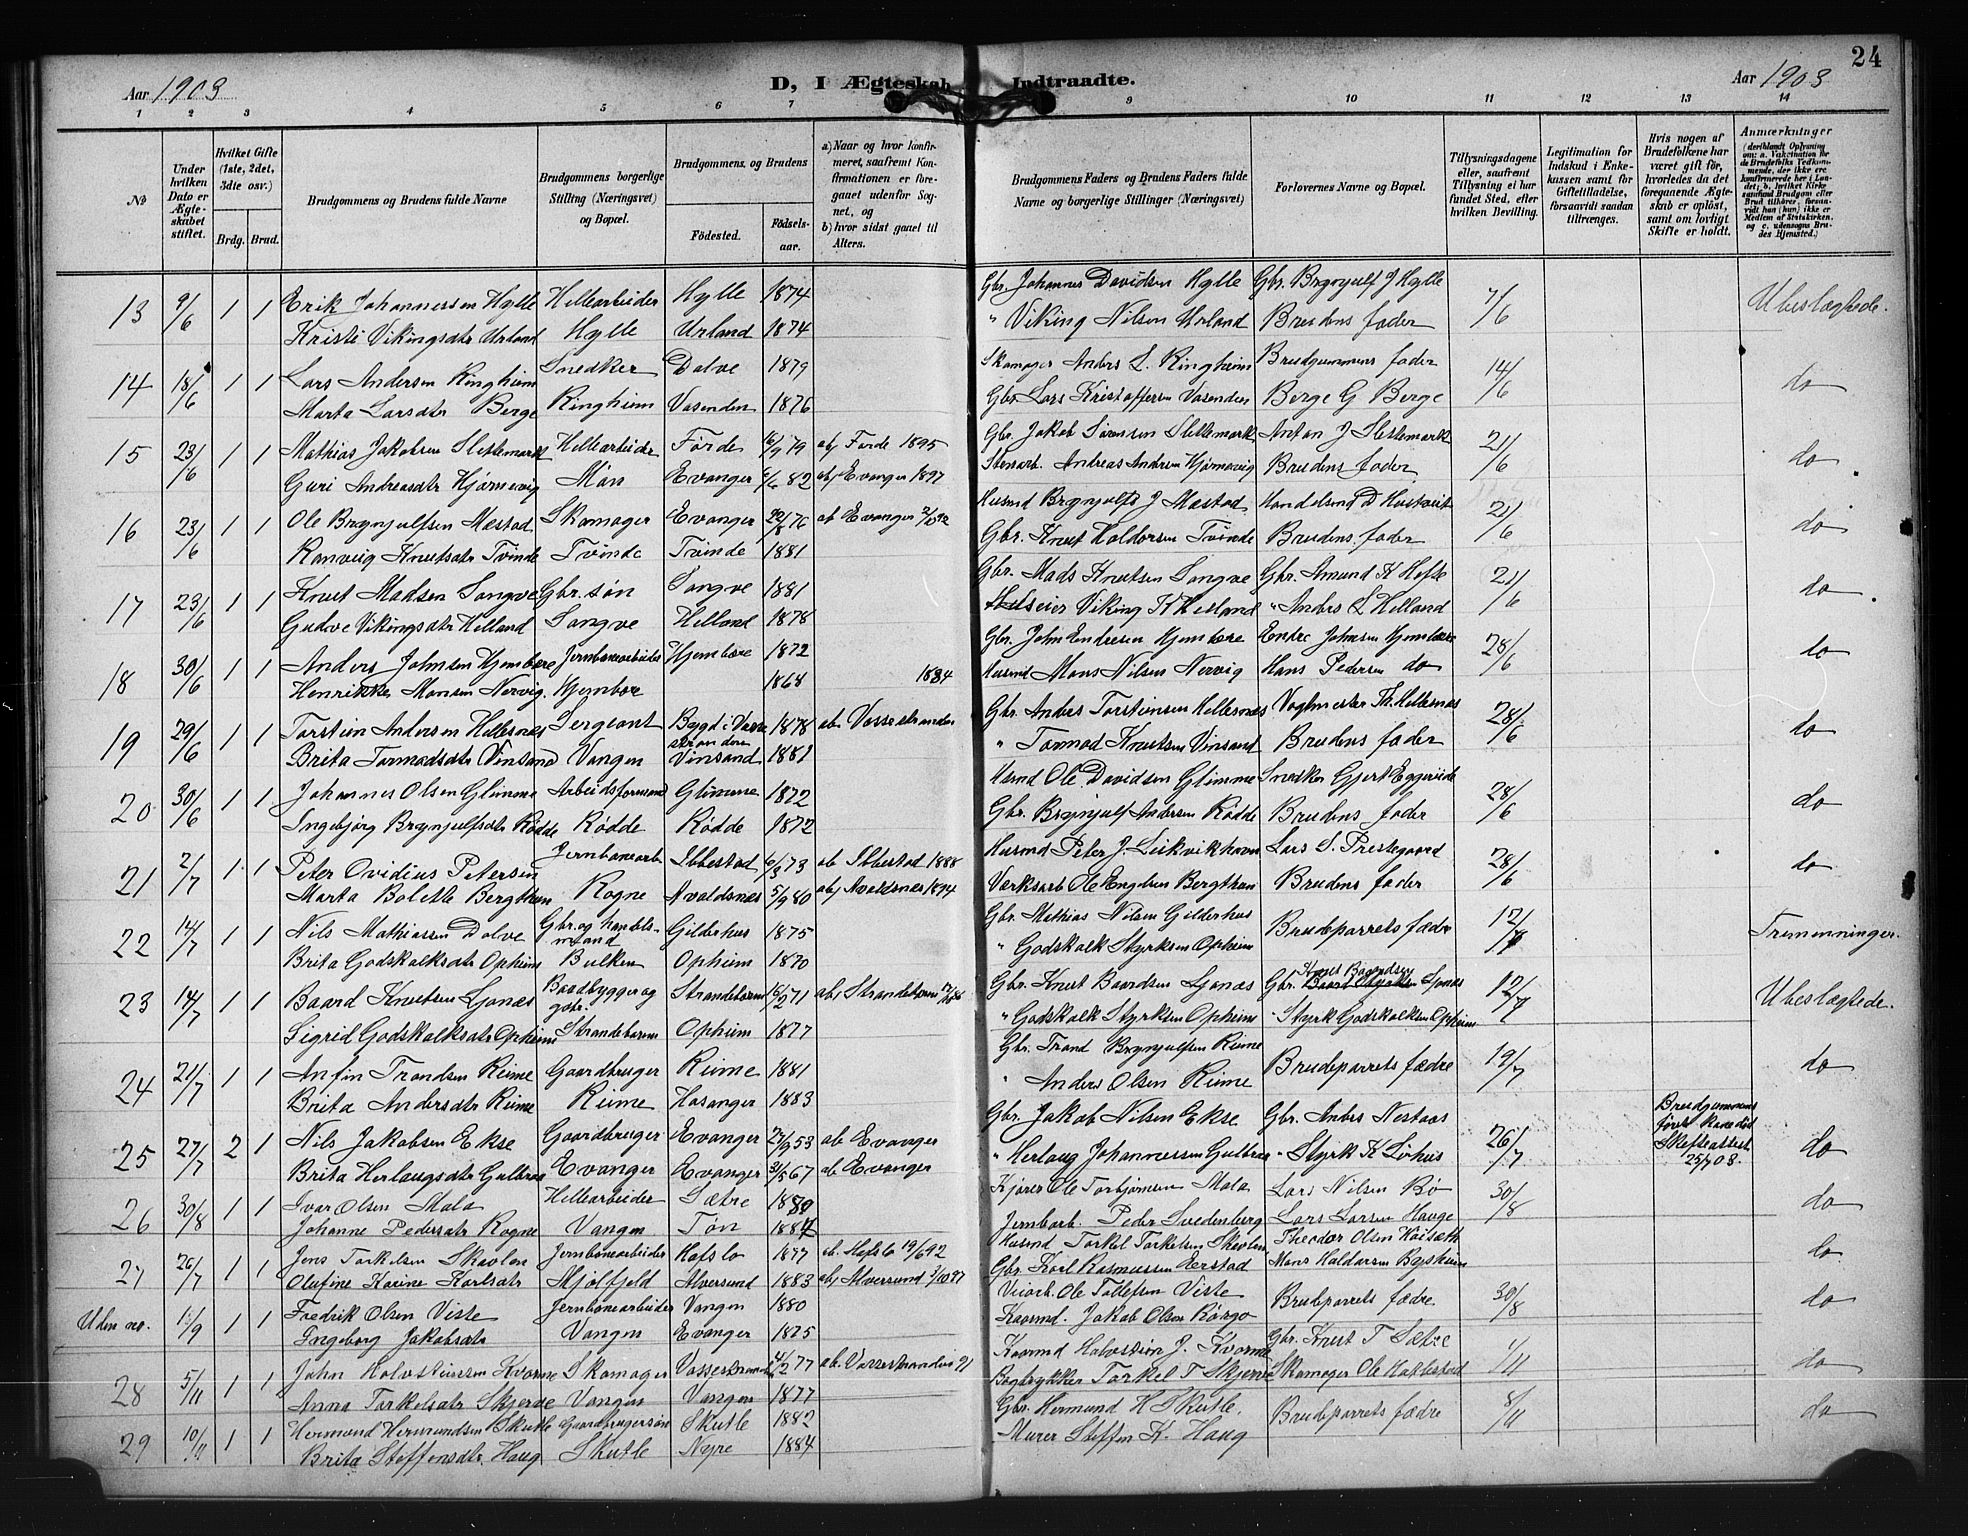 24
Aar 1903 D, I Ægteskab Indtraadte. Aar 1903
1 2 3 4 5 6 7 9 10 11 12 13 14
No
Under hvilken Dato er Ægteskabet stiftet.
Hvilket Gifte (1ste, 2det, 3dte osv.)
Brdg. Brud.
Brudgommens og Brudens fulde Navne
Brudgommens borgerlige Stilling (Næringsvei) og Bopæl.
Brudgommens og Brudens
Fødested. Fødselsaar.
a) Naar og hvor konfirmeret, saafremt Konfirmationen er foregaaet udenfor Sognet, og
b) hvor sidst gaaet til Alters.
Brudgommens Faders og Brudens Faders fulde Navne og borgerlige Stillinger (Næringsvei)
Forlovernes Navne og Bopæl.
Tillysningsdagene eller, saafremt Tillysning ei har fundet Sted, efter hvilken Bevilling.
Legitimation for Indskud i Enkekassen samt for Giftetilladelse, forsaavidt saadan tiltrænges.
Hvis nogen af Brudefolkene har været gift før, hvorledes da det foregaaende Ægteskab er opløst, samt om lovligt Skifte er holdt.
Anmærkninger (deriblandt Oplysning om: a. Vakcination for de Brudefolks Vedkommende, der ikke ere konfirmerede her i Landet; b. hvilket Kirkesamfund Brudgom eller Brud tilhører, forsaavidt han (hun) ikke er Medlem af Statskirken, og c. udensogns Brudes Hjemsted.)
13 9/6 1 1 Erik Johannessen Hylle Hellearbeider Hylle 1874 Gbr. Johannes Davidsen Hylle Gbr. Brynjulf J Hylle 7/6 Ubeslægtede.
Kristi Vikingsdtr Urland Hylle Urland 1874 " Viking Nilsen Urland Brudens fader
14 18/6 1 1 Lars Andersen Ringheim Snedker Dolve 1879 Skomager Anders L. Ringheim Brudgummens fader 14/6 do
Marta Larsdtr Berge Ringheim Vasenden 1876 Gbr Lars Kristoffersen Vasenden Berge G Berge
15 23/6 1 1 Mathias Jakobsen Slettemark Hellearbeider Førde 6/9 79 ab Førde 1895 Gbr. Jakob Sørensen Slettemark Anton J Slettemark 21/6 do
Guri Andreasdtr Hjørnevig Møn Evanger 6/6 82 ab Evanger 1897 Stenarb. Andreas Andersen Hjørnevig Brudens fader
16 23/6 1 1 Ole Brynjulfsen Mestad Skomager Evanger 22/8 76 ab Evanger 2/10 92 Husmd Brynjulf J Mestad Handelsmd D Hustveit 21/6 do
Ranveig Knutsdtr Tvinde Tvinde Tvinde 1881 Gbr. Knut Holdorsen Tvinde Brudens fader
17 23/6 1 1 Knut Madsen Songve Gbr. søn Songve 1881 Gbr. Mads Knutsen Songve Gbr. Amund K Hefte 21/6 do
Gudve Vikingsdtr Helland Songve Helland 1878 Selveier Viking K Helland " Anders L Helland
18 30/6 1 1 Anders Johnsen Hjembære Jernbanearbeider Hjembære 1872 Gbr. John Endresen Hjembære Endre Johnsen Hjembære 28/6 do
Henrikke Monsen Nervig Hjembær 1868 1884 Husmd Mons Nilsen Nervig Hans Pedersen do
19 29/6 1 1 Torstein Andersen Hellesnes Sergeant Bygd i Vossestranden 1878 ab Vossestranden Gbr. Anders Torsteinsen Hellesnes Vogtmester Th. Hellesnes 28/6 do
Brita Tormodsdtr Vinsand Vangen Vinsand 1881 " Tormod Knutsen Vinsand Brudens fader
20 30/6 1 1 Johannes Olsen Glimme Arbeidsformand Glimme 1872 Husmd Ole Davidsen Glimme Snedker Gjert Eggereide 28/6 do
Ingebjørg Brynjulfsdtr Rødde Rødde Rødde 1872 Gbr. Brynjulf Andersen Rødde Brudens fader
21 2/7 1 1 Peter Ovidius Petersen Jernbanearb Ibbestad 6/3 73 ab Ibbestad 1888 Husmd Peter J. Leikvikhavn Lars S. Prestegaard 28/6 do
Marta Bolette Bergthun Rogne Avaldsnes 5/9 80 ab Avaldsnes 1894 Værksarb Ole Engelsen Bergthun Brudens fader
22 14/7 1 1 Nils Mathiassen Dolve Gbr. og handelsmand Gilderhus 1875 Gbr. Mathias Nilsen Gilderhus Brudeparrets fædre 12/7 Tremenninger.
Brita Godskalksdtr Opheim Bulken Opheim 1870 " Godskalk Styrksen Opheim
23 14/7 1 1 Baard Knutsen Ljonæs Baadbygger og gbr. Strandebarm 16/2 71 ab Strandebarm Gbr. Knut Baardsen Ljonæs Gbr. Knut Baardsen Ljonæs 12/7 Ubeslægtede.
Sigrid Godskalksdtr Opheim Strandebarm Opheim 1877 " Godskalk Styrksen Opheim " Styrk Godskalksen Opheim
24 21/7 1 1 Anfin Trondsen Reime Gaardbruger Reime 1881 Gbr. Trond Brynjulfsen Reime Brudeparrets fædre 19/7 do
Brita Andersdtr Reime Reime Hosanger 1883 " Anders Olsen Reime
25 27/7 2 1 Nils Jakobsen Ekse Gaardbruger Evanger 27/9 53 ab Evanger Gbr. Jakob Nilsen Ekse Gbr. Anders Nestaas 26/7 Brudgummens første Kone død Skifteattest 25/7 08. do
Brita Herlaugsdtr Gulbraa Evanger Evanger 31/5 67 ab Evanger " Herlaug Johannessen Gulbraa " Styrk K Lirhus
26 30/8 1 1 Ivar Olsen Mala Hellearbeider Sætre 1880 Kjører Ole Torbjørnsen Mala Lars Nilsen Bø 30/8 do
Johanne Pedersdtr Rogne Vangen Tøn 1884 Jernbarb. Peder Svedenberg Lars Larsen Hauge
27 26/7 1 1 Jens Torkelsen Skovlen Jernbanearbeider Hafslo 1877 ab. Hafslo 19/6 92 Husmd Torkel Torkelsen Skovlen Theodor Olsen Høiseth do
Olufine Karine Karlsdtr Mjølfjeld Alversund 1883 ab Alversund 3/10 97 Gbr. Karl Rasmussen Eerstad Mons Haldorsen Bygsheim
Uden no. 1/9 1 1 Fredrik Olsen Viste Jernbanearbeider Vangen 1880 Veiarb. Ole Tollefsen Viste Brudeparrets fædre. 30/8 do
Ingeborg Jakobsdtr Vangen Evanger 1875 Kaarmd. Jakob Olsen Rørgo
28 5/11 1 1 John Holvsteinssen Kvarme Skomager Vossestranden 4/2 77 ab. Vossestranden 91 Kaarmd Holvstein J. Kvarme Gbr. Knut T Sætre 1/11 do
Anna Torkelsdtr Skjerve Vangen Vangen 1877 Bogtrykker Torkel T Skjerve Skomager Ole Hatlestad
29 10/11 1 1 Hermund Hermundsen Skutle Gaardbrugersøn Skutle 1882 Gbr. Hermund H Skutle. Brudeparrets fædre 8/11 do
Brita Steffensdtr. Haug Skutle Nyre 1884 Murer Steffen K. Haug